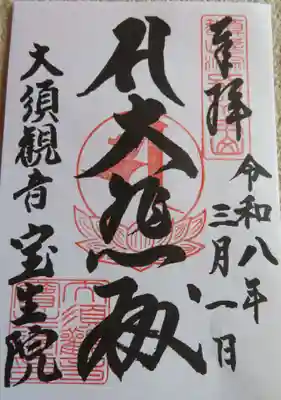 奉拝
令和八年
三月一日
大悲殿
大須観音
宝生院